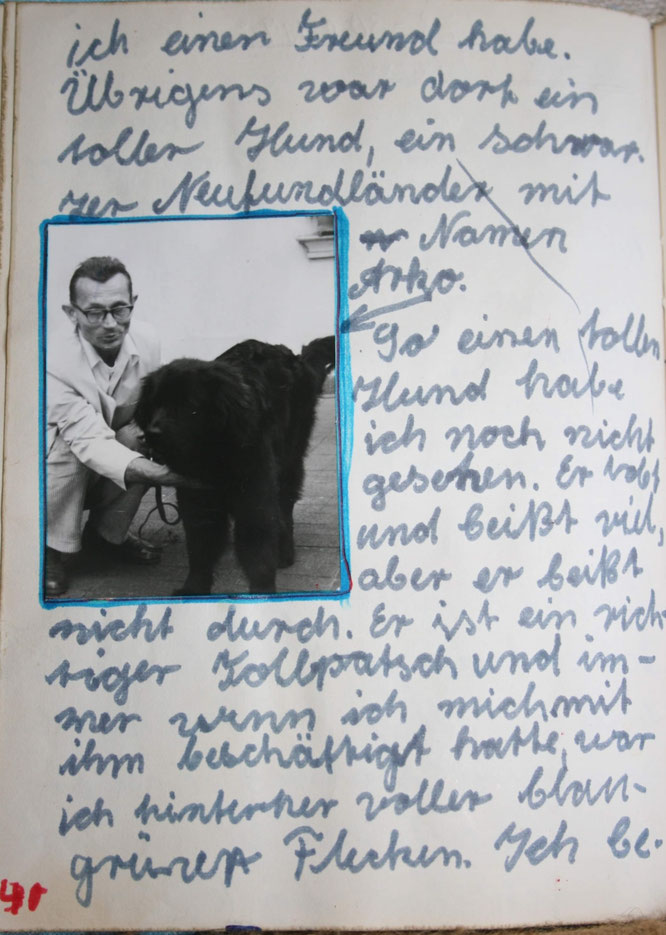 ich einen Freund habe.
Übrigens war dort ein
toller Hund, ein schwar-
zer Neufundländer mit
Namen
Arko.
So einen tollen
Hund habe
ich noch nicht
gesehen. Er tobt
und beißt viel,
aber er beißt
nicht durch. Er ist ein rich-
tiger Tollpatsch und im-
mer wenn ich mich mit
ihm beschäftigt hatte, war
ich hinterher voller blau-
grüner Flecken. Ich be-
41